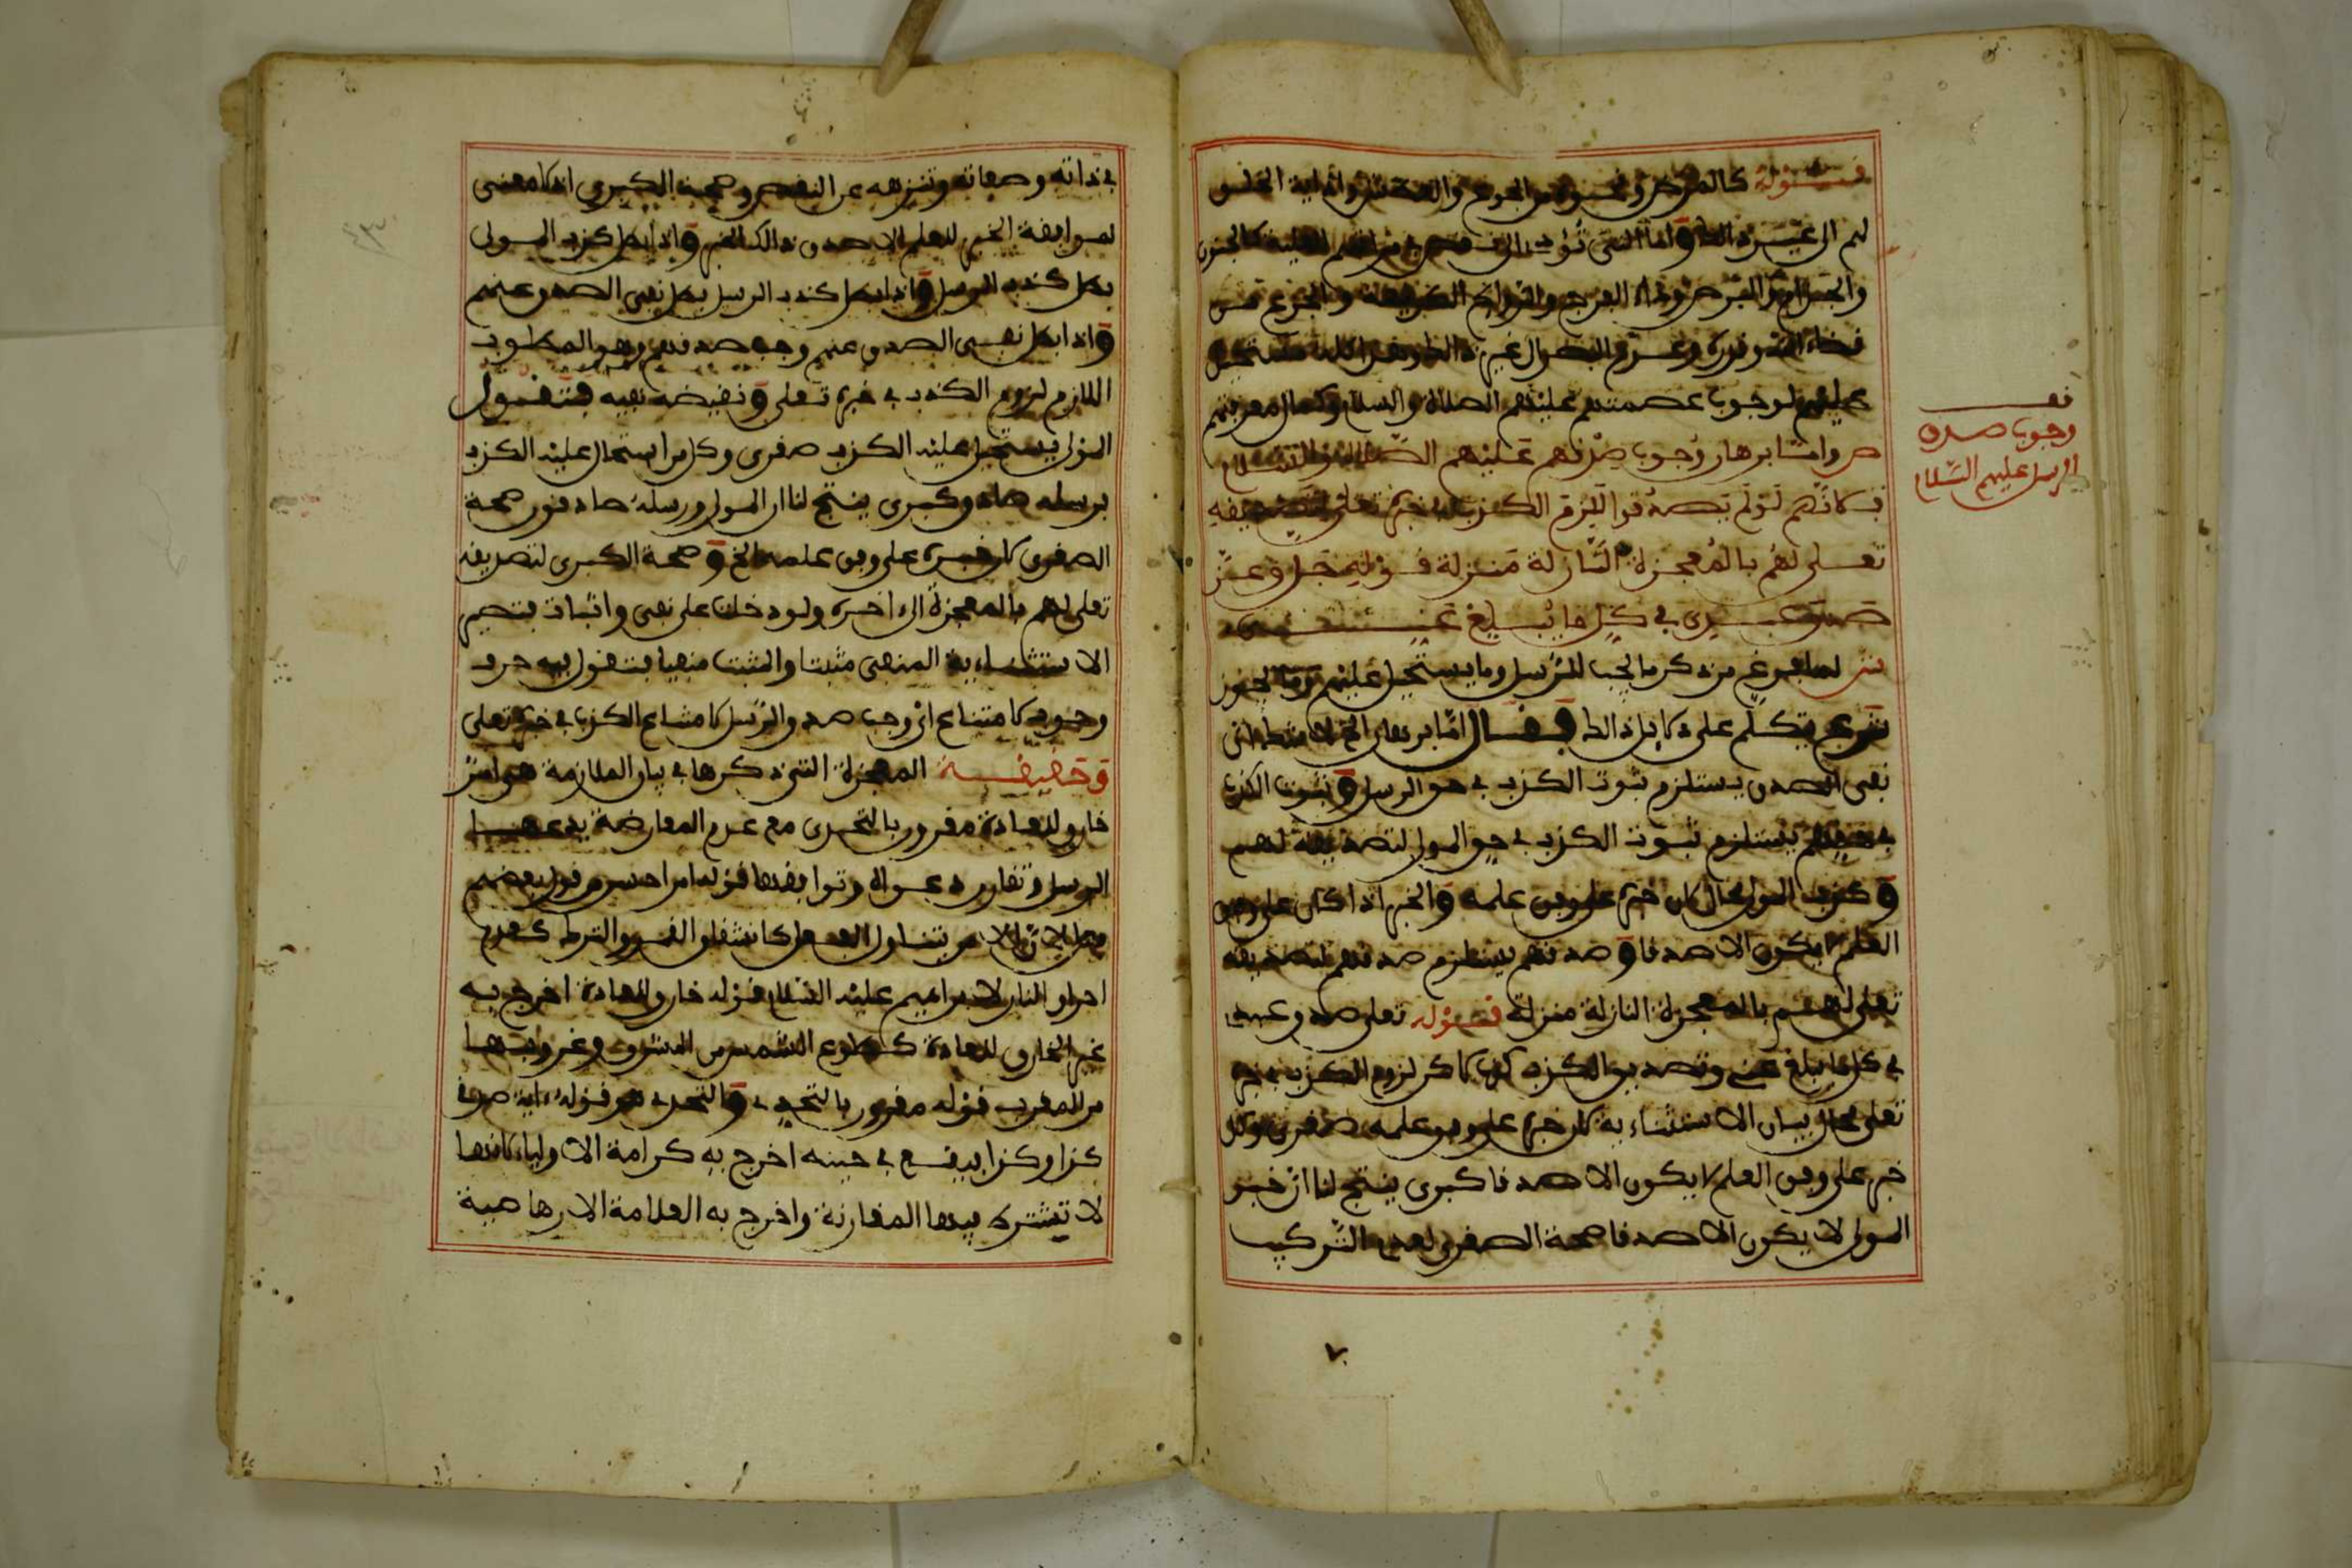 قوله كالمرض ونحوه من الجوع والعطش واذاية الخلق
لهم الى غير ذالك واما التي تؤدي الى نقص في مراتبهم العلية كالجنون
والجذام والبرص وداء الفرج
عليهم لوجوب عصمتهم عليهم الصلاة والسلام وكمال معرفتهم
ص واما برهان وجوب صدقهم عليهم الصلاة والسلام
فلانهم لو لم يصدقوا للزم الكذب في خبره تعلى لتصديقه
تعلى لهم بالمعجزة النازلة منزلة قوله جل وعز
صدق عبدي في كل ما يبلغ عني
ش لما فرغ من ذكر ما يجب للرسل وما يستحيل عليهم وما يجوز
شرع يتكلم على دلايل ذالك فقال اما برهان الخ
نفي الصدق يستلزم ثبوت الكذب في حق الرسل وثبوت الكذب
في حقهم يستلزم ثبوت الكذب في حق المولى لتصديقه لهم
وكذب المولى محال لان خبره على وفق علمه والخبر اذا كان على وفق
العلم لا يكون الا صدقا وصدقهم يستلزم صدقهم لتصديقه
تعلى لهم بالمعجزة النازلة منزلة قوله تعلى صدق عبدي
في كل ما يبلغ عني وتصديق الكذب كذب لاكن لزوم الكذب في خبره
تعلى محال وبيان الاستثنائية كل خبره على وفق علمه صغرى وكل
خبر على وفق العلم لا يكون الا صدقا كبرى ينتج لنا ان خبر
المولى لا يكون الا صدقا صحة الصغرى لعدم التركيب
نف
وجوب صدق
الرسل عليهم السلام
في ذاته وصفاته وتنزهه عن النقص وصحة الكبرى اذ لا معنى
لموافقة الخبر للعلم الا صدق ذالك الخبر واذا بطل كذب المولى
بطل كذب الرسل واذا بطل كذب الرسل بطل نفي الصدق عنهم
واذا بطل نفي الصدق عنهم وجب صدقهم وهو المطلوب
اللازم لزوم الكذب في خبره تعلى ونقيضه نفيه فتقول
المولى يستحيل عليه الكذب صغرى وكل من استحال عليه الكذب
برسله صادق كبرى ينتج لنا ان المولى ورسله صادقون صحة
الصغرى كل خبره على وفق علمه الخ وصحة الكبرى لتصديقه
تعلى لهم بالمعجزة الى اخره ولو دخلت على نفي واثبات بتصير
الاستثنائية المنفي مثبتا والمثبت منفيا فتقول فيه حرف
وجوب لامتناع اي وجب صدق الرسل لامتناع الكذب في خبره تعلى
وحقيقة المعجزة التي ذكرها في بيان الملازمة هي امر
خارق للعادة مقرون بالتحدي مع عدم المعارضة يدعيها
الرسل وتقارن دعواه وتوافقها قوله امر احسن من قول بعضهم
فعل لان الامر يتناول الفعل كانشقاق القمر والترك كعدم
احراق النار لابراهيم عليه السلام قوله خارق للعادة اخرج به
غير الخارق للعادة كطلوع الشمس من المشرق وغروبها
من المغرب قوله مقرون بالتحدي والتحدي هو قوله ءاية صدقي
كذا وكذا فيقع في حينه اخرج به كرامة الاولياء لانها
لا تشترط فيها المقارنة واخرج به العلامة الارهاصية